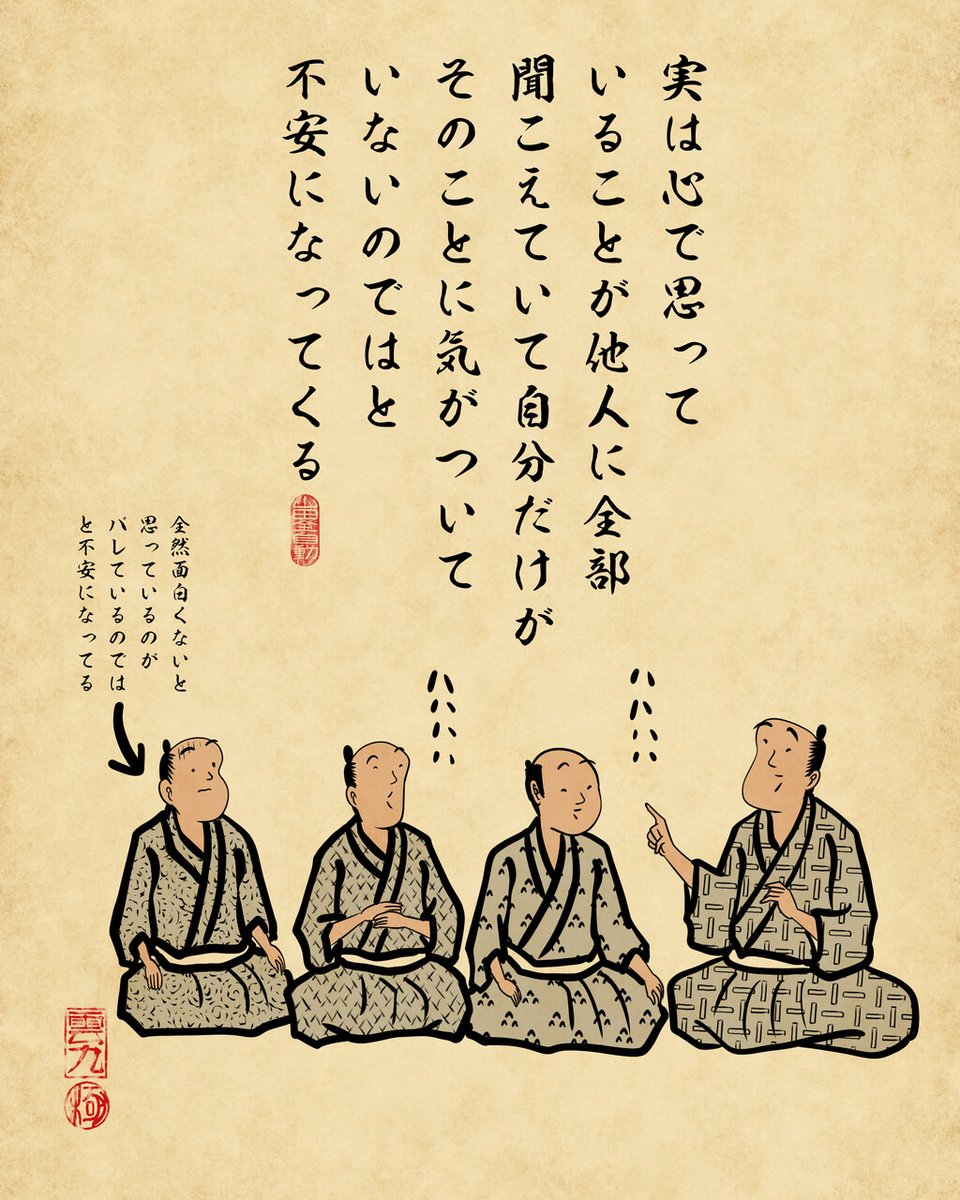 実は心で思って
いることが他人に全部
聞こえていて自分だけが
そのことに気がついて
いないのではと
不安になってくる
全然面白くないと
思っているのが
バレているのでは
と不安になってる
ハハハハ
ハハハハ